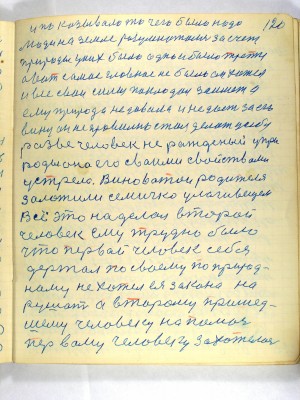 120
и показывало то чего было надо
люди на земле размножались за счет
природы у них было одно и было третье
а вот самое главное не было
и все свои силы
ему природа не давала и не дает за его
вину он не правильно стал делать
разве человек не рожденый у при
родиона его своими свойствами
устрело. Виноватои родителя
заложили семечко
Всё это наделал второй
человек ему трудно было
что первай человек себя
держал по своему по природ-
ному не хотел ея закона на
рушат а второму пришед-
шему человеку на помощ
первому человеку захотелося